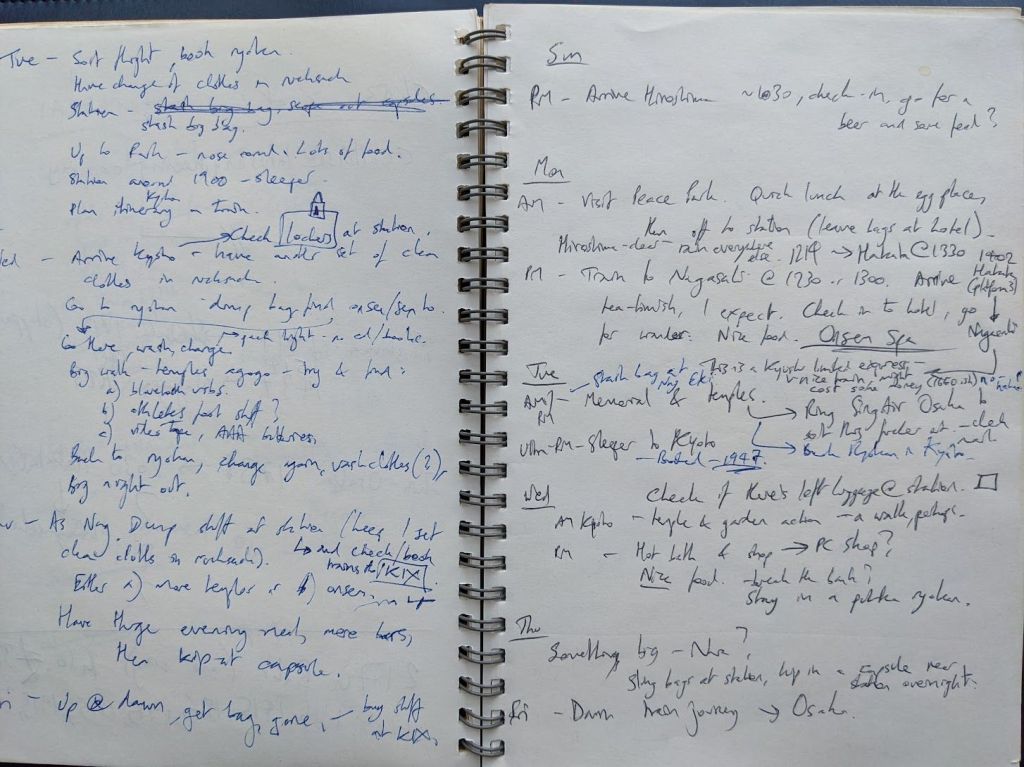 Tue - Sort flight, book ryokan.
Have change of clothes in rucksack
Station - stash big bag, scope out capsules
stash big bag.
Up to Park - nose round. Lots of food.
Station around 1900 - sleeper.
Plan Kyoto itinerary on train.
→ Check lockers at station.
Wed - Arrive Kyoto - have another set of clean
clothes in rucksack.
Go to ryokan - dump bag, find onsen/
→ pack light - no
Go there, wash, change
Big walk - temples agogo - try & find:
a)
b) athletes foot stuff?
c) video tape, AAA batteries,
Back to ryokan, change again, wash clothes (?),
Big night out.
As Nag. Dump stuff at station (keep 1 set
clean cloths in rucksack). → and check/book
trains to KIX
Either a) more temples or b) onsen
Have huge evening meal, more beers,
then kip at capsule.
Fri - Up @ dawn, get bag, gone, - buy stuff
at KIX.
Sun
PM - Arrive Hiroshima ~1630, check-in, go for a
beer and some food?
Mon
AM - Visit Peace Park. Quick lunch at the egg place,
then off to station (leave bags at hotel).
Hiroshima - clear - rain everywhere
else. 1214 → Hakata @ 1330
1402
Hakata
(platform 3)
↓
Nagasaki
PM - Train to Nagasaki @ 1230 or 1300. Arrive
tea-timish, I expect. Check in to hotel, go
for wander. Nice food. Onsen Spa
Tue
- Stash bag at Nag Eki
This is a Kyushu limited express
- v. nice train, might
cost some money
AM/PM - Memorial & temples.
→ Ring SingAir Osaka to
→ Book Ryokan in Kyoto
Uber-PM - Sleeper to Kyoto
- Booked - 1947.
Wed
Check if there's left luggage @ station. □
AM Kyoto - temple & garden action - a walk, perhaps.
PM - Hot bath & shop → PC shop?
Nice food. - break the bank?
Stay in a ryokan.
Thu
Something big - Nara?
Sling bags at station, kip in a capsule near
station overnight.
Fri - Dawn train journey → Osaka.